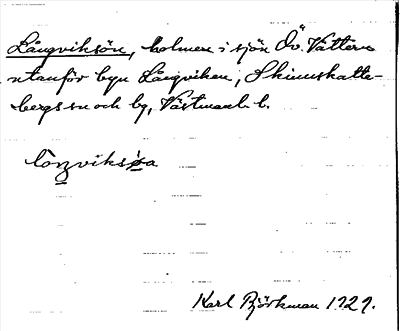 Långviksön, holmen i sjön Öv. Vättern
utanför byn Långviken, Skinnskatte-
bergs sn och bg, Västmanl. l.
långviksöa
Karl Björkman 1929.